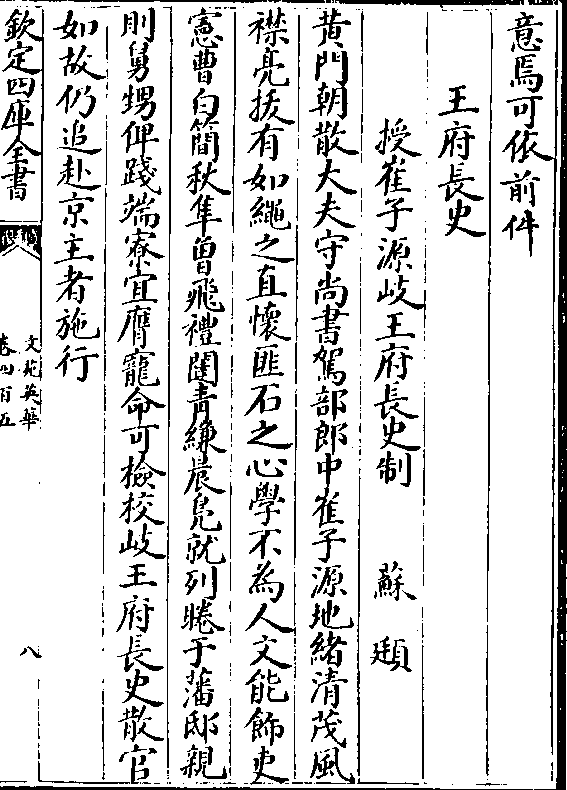 意焉可依前件
王府長史
授崔子源岐王府長史制 蘇頲
黄門朝散大夫守尚書駕部郎中崔子源地緒清茂風
襟亮拔有如繩之直懷匪石之心學不為人文能飾吏
憲曹白簡秋隼曽飛禮闈青縑晨凫就列睠于藩邸親
則舅甥俾踐端寮宜膺寵命可檢校岐王府長史散官
如故仍追赴京主者施行
欽定四庫全書
文苑英華
卷四百五
八